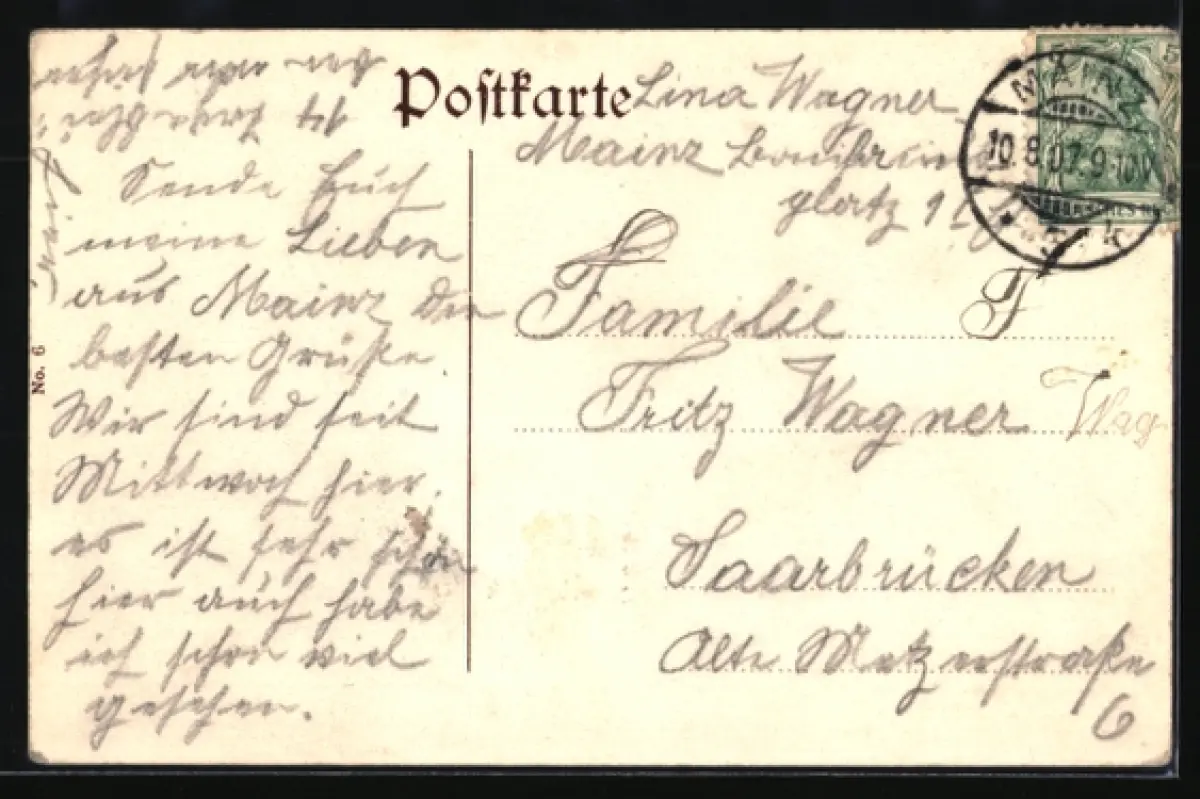 Postkarte
Lina Wagner
Mainz
Sende Euch
meine Lieben
aus Mainz die
besten Grüße
Wir sind seit
Mittwoch hier,
es ist sehr schön
hier auch habe
ich schon viel
gesehen.
No. 6
MAINZ
10.8.07.9-10V
5 5
Familie F
Fritz Wagner Wag
Saarbrücken
Alte Metzerstraße
6